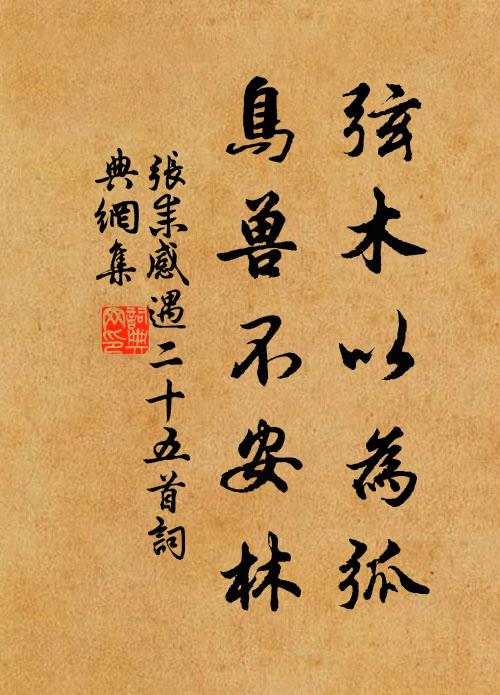 弦木以為弧
鳥兽不安林
張耒感遇二十五首詞
典網集
詞典
网印